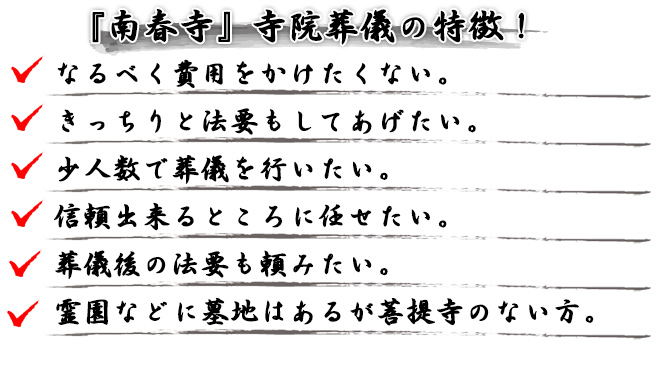 『南春寺』寺院葬儀の特徴！
なるべく費用をかけたくない。
きっちりと法要もしてあげたい。
少人数で葬儀を行いたい。
信頼出来るところに任せたい。
葬儀後の法要も頼みたい。
霊園などに墓地はあるが菩提寺のない方。